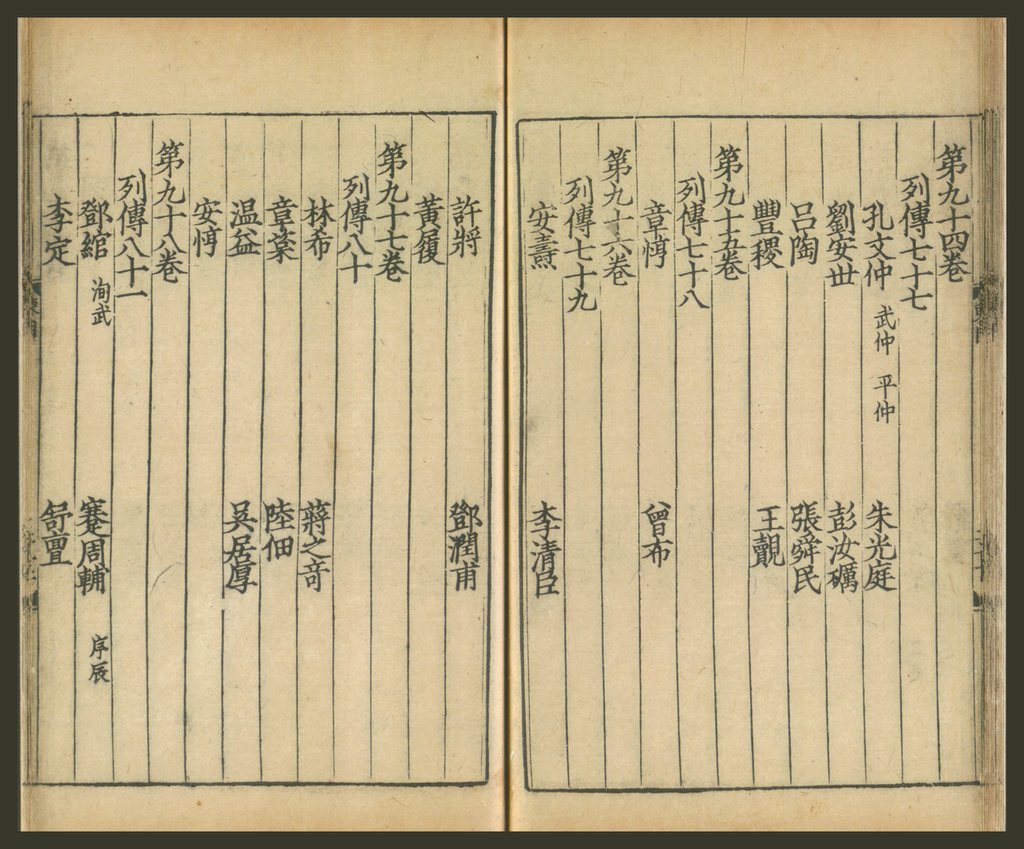 第九十四卷
列傳七十七
孔文仲 武仲 平仲 朱光庭
劉安世 彭汝礪
呂陶 張舜民
豐稷 王覿
第九十五卷
列傳七十八
章惇 曾布
第九十六卷
列傳七十九
安燾 李清臣
許將 鄧潤甫
黃履
第九十七卷
列傳八十
林希 蔣之奇
章楶 陸佃
温益 吳居厚
安惇
第九十八卷
列傳八十一
鄧綰 洵武 蹇周輔 序辰
李定 舒亶